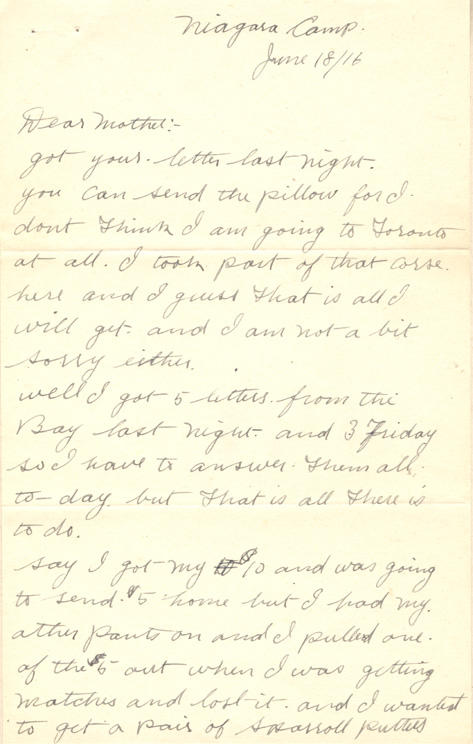 Niagara Camp.
June 18/16
Dear Mother:-
got your letter last night.
you can send the pillow for I
dont think I am going to Toronto
at all. I took part of that corse
here and I guess that is all I
will get. and I am not a bit
sorry either.
well I got 5 letters from the
Bay last night. and 3 Friday
so I have to answer them all
to-day but that is all there is
to do.
say I got my $10 and was going
to send $5 home but I had my
other pants on and I pulled one
of the $5 out when I was getting
matches and lost it. and I wanted
to get a pair of puttees